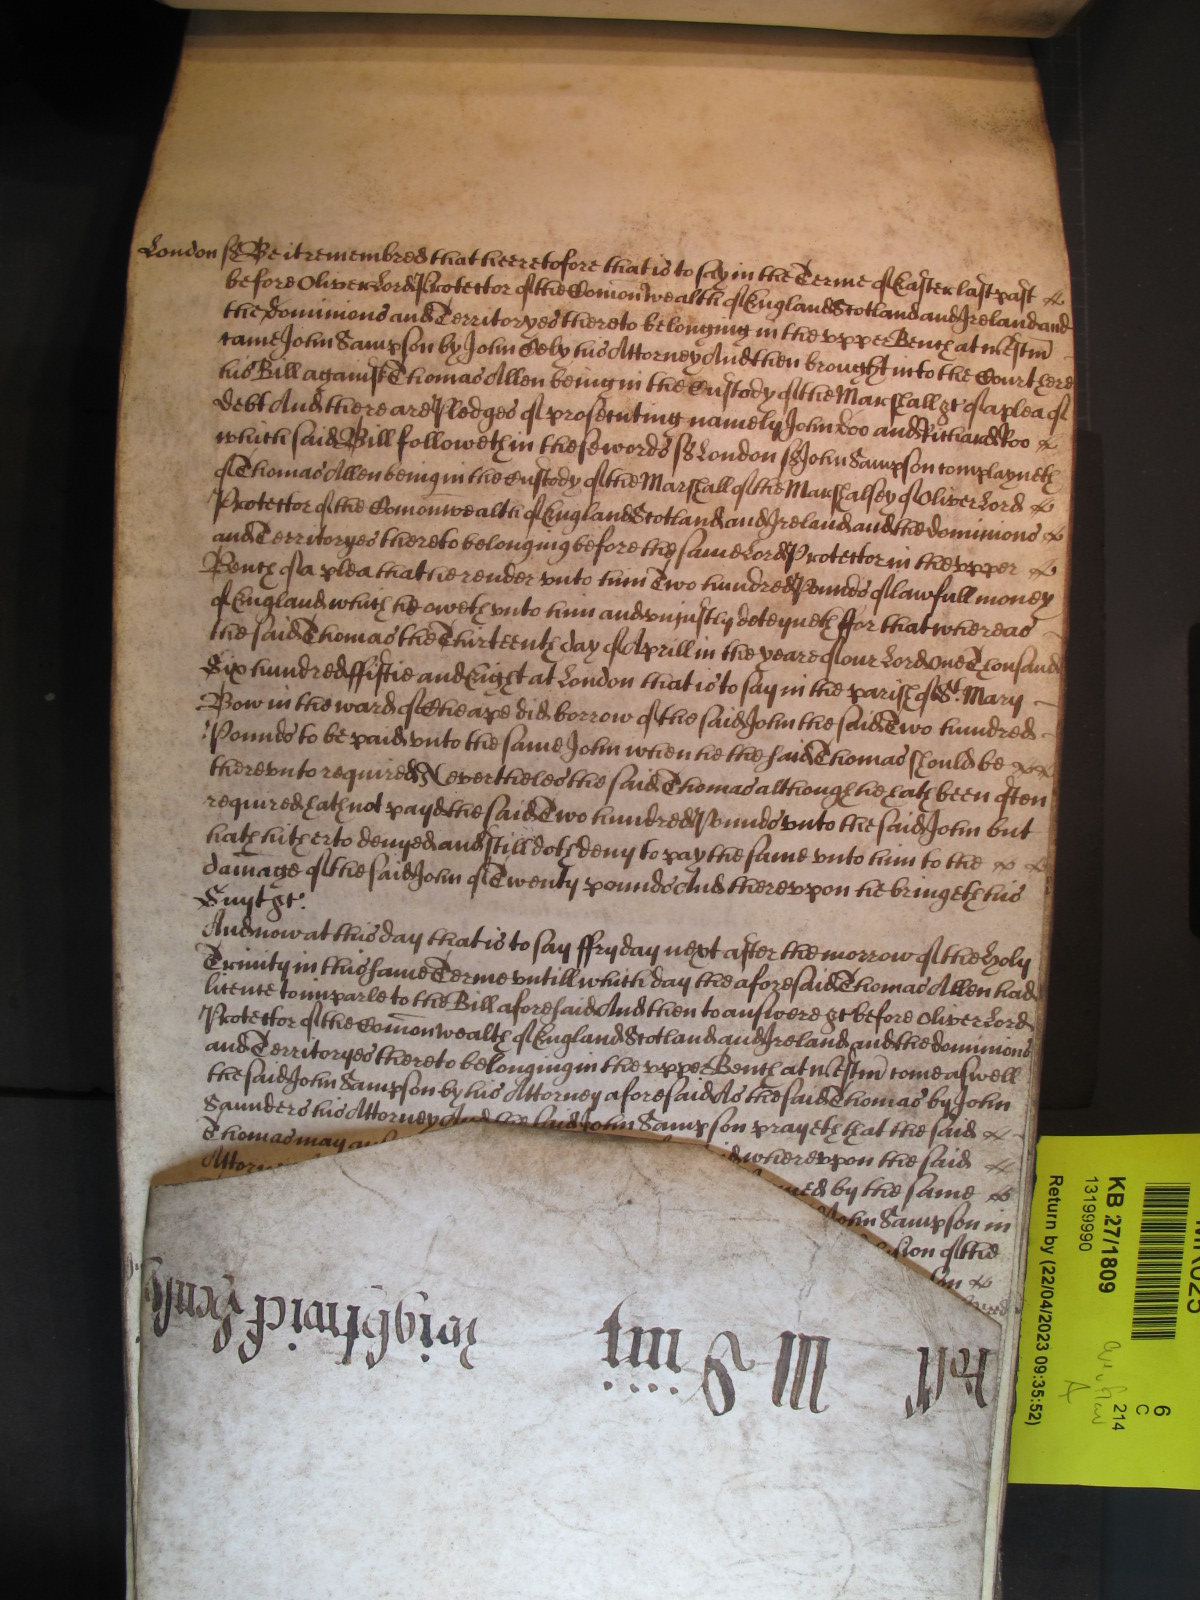 London ss Be it remembred that heeretofore that is to say in the Terme of Easter last past
before Oliver Lord Protector of the Com̄onwealth of England Scotland and Ireland and
the dominions and Territoryes thereto belonging in the vpper Bench at Westm̄
came John Sampson by John Eeby his Attorney And then brought into the Court here
his Bill against Thomas Allen being in the Custody of the Marshall &c of a plea of
debt And there are Pledges of prosecuting namely John Doo and Richard Roo
which said Bill followeth in these words ss London ss John Sampson complayneth
of Thomas Allen being in the Custody of the Marshall of the Marshalsey of Oliver Lord
Protector of the Com̄onwealth of England Scotland and Ireland and the dominions
and Territoryes thereto belonging before the same Lord Protector in the vpper
Bench of a plea that he render vnto him Two hundred Pounds of lawfull money
of England which he oweth vnto him and vniustly deteyneth ffor that whereas
the said Thomas the Thirteenth day of Aprill in the yeare of our Lord One Thousand
Six hundred ffiftie and Eight at London that is to say in the parish of St. Mary
Bow in the ward of Cheape did borrow of the said John the said Two hundred
Pounds to be paid vnto the same John when he the said Thomas should be
therevnto required Neverthelesse the said Thomas although he hath been often
required hath not payd the said Two hundred Pounds vnto the said John but
hath hitherto denyed and still doth deny to pay the same vnto him to the
dam̄age of the said John of Twenty pounds And therevpon he bringeth his
Suyt &c.
And now at this day that is to say ffryday next after the morrow of the Holy
Trinity in this same Terme vntill which day the aforesaid Thomas Allen had
licence to imparle to the Bill aforesaid And then to answere &c before Oliver Lord
Protector of the Com̄onwealth of England Scotland and Ireland and the dominions
and Territoryes thereto belonging in the vpper Bench at Westm̄ come aswell
the said John Sampson by his Attorney aforesaid As the said Thomas by John
Saunders his Attorney And the said John Sampson prayeth that the said
Thomas may wherevpon the said
by the same
John Sampson in
of the
Roll M
KB 27/1809
13199990
Return by (22/04/2023 09:35:52)
6
C
214